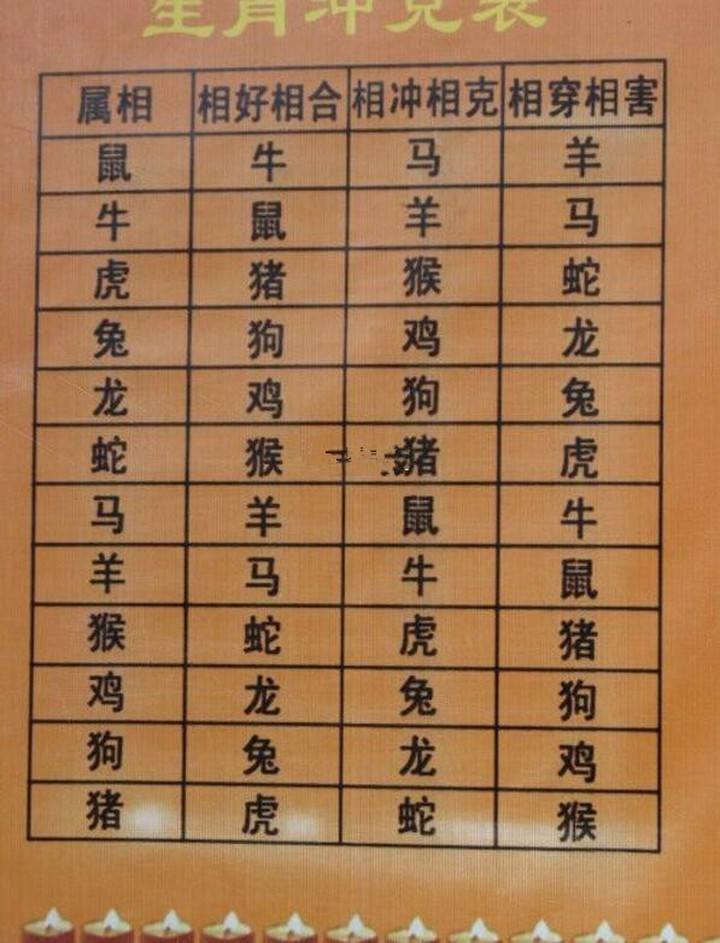 星肖冲克表
属相 相好相合 相冲相克 相穿相害
鼠 牛 马 羊
牛 鼠 羊 马
虎 猪 猴 蛇
兔 狗 鸡 龙
龙 鸡 狗 兔
蛇 猴 猪 虎
马 羊 鼠 牛
羊 马 牛 鼠
猴 蛇 虎 猪
鸡 龙 兔 狗
狗 兔 龙 鸡
猪 虎 蛇 猴